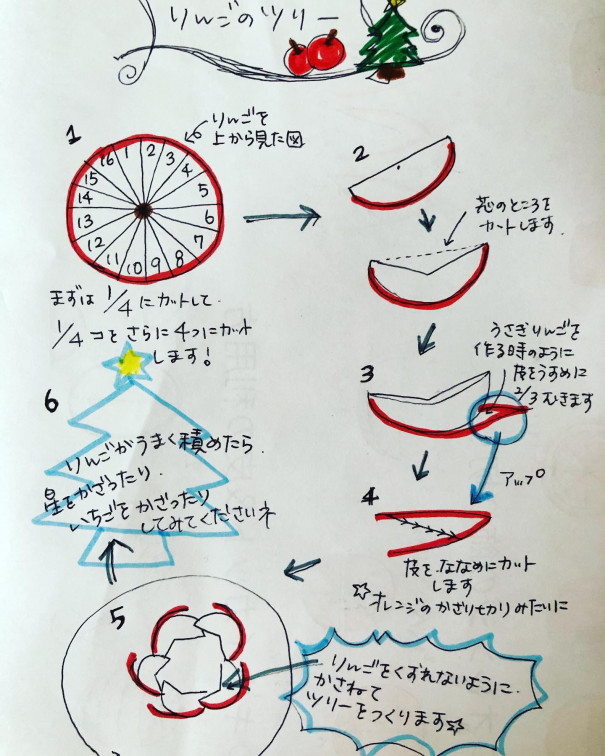 りんごのツリー
1
りんごを
上から見た図
1 2 3 4 5 6 7 8 9 10 11 12 13 14 15 16
まずは 1/4 にカットして
1/4 コを さらに 4つにカット
します!
2
芯のところを
カットします
3
うさぎりんごを
作る時のように
皮をうすめに
2/3 むきます
アップ
4
皮を ななめにカット
します
☆オレンジのかざり切りみたいに
5
りんごをくずれないように
かさねて
ツリーをつくります☆
6
りんごがうまく積めたら
星をかざったり
いちごをかざったり
してみてくださいネ